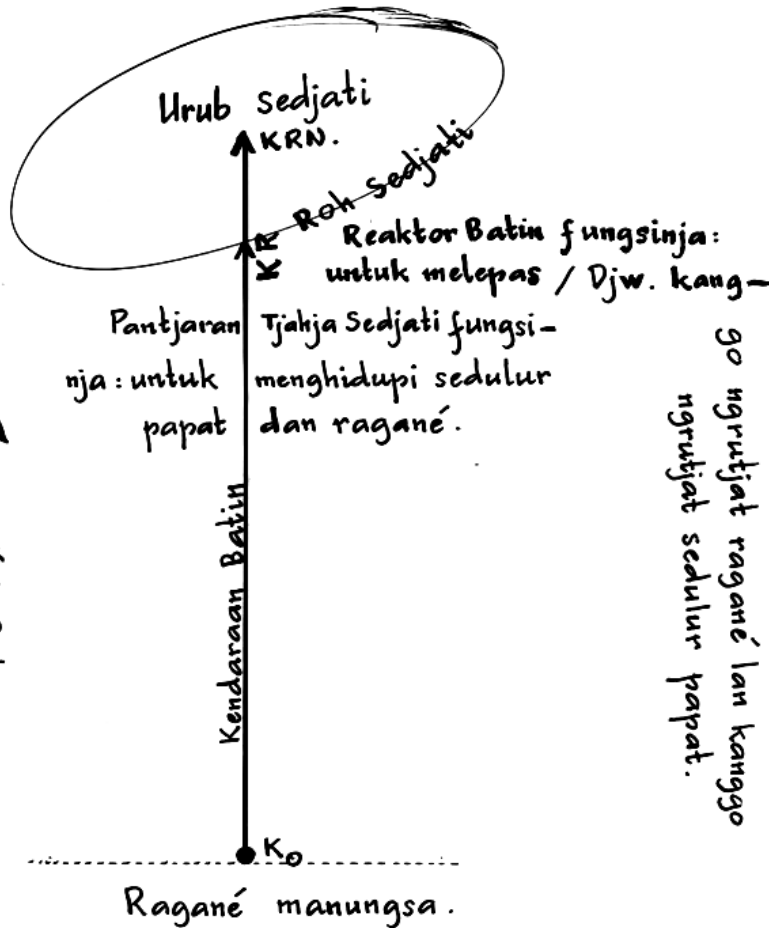 Urub sedjati
KRN.
Roh Sedjati
KR
Reaktor Batin fungsinja:
untuk melepas / Djw. kang-
go ngrutjat ragané lan kanggo
ngrutjat sedulur papat.
Pantjaran Tjahja Sedjati fungsi-
nja: untuk menghidupi sedulur
papat dan ragané.
Kendaraan Batin
Ko
Ragané manungsa.